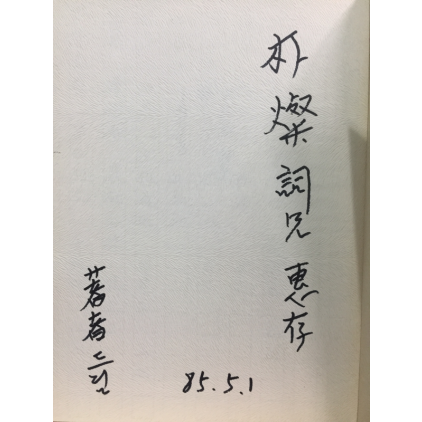 朴燦詞兄 惠存
著者 드림
85.5.1